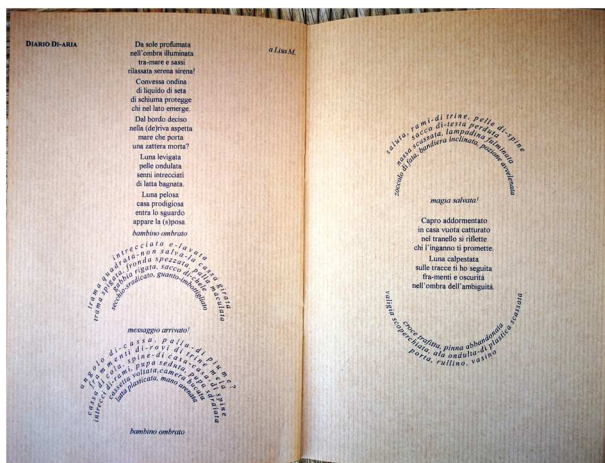 DIARIO DI-ARIA
a Lisa M.
Da sole profumata
nell'ombra illuminata
tra-mare e sassi
rilassata serena sirena!
Convessa ondina
di liquido di seta
di schiuma protegge
chi nel lato emerge.
Dal bordo deciso
nella (de)riva aspetta
mare che porta
una zattera morta?
Luna levigata
pelle ondulata
senni intrecciati
di latta bagnata.
Luna pelosa
casa prodigiosa
entra lo sguardo
appare la (s)posa.
bambino ombrato
intrecciato e-lavata
trama quadrata-non salva-la cassa girata
trama spigata, fronda spezzata, palla maculata
gabbia rigata, sacco di-chele
secchio-sradicato, guanto-imbottigliato
messaggio arrivato!
angolo di-cassa, palla-di piume?
frammenti di-rovi di trine
cassa di cola, spine-di casa-cara-di spine
intrecci di-rami, pupa seduta, pupa sdraiata
cassetta voltata, camera bucata
latta plasticata, mano arenata
bambino ombrato
saluta, rami-di trine, pelle di-spine
sacco di-testa perduta
nassa scassata, lampadina fulminata
zoccolo di fata, bandiera inclinata, pozione avvelenata
magia salvata!
Capro addormentato
in casa vuota catturato
nel tranello si riflette
chi l'inganno ti promette.
Luna calpestata
sulle tracce ti ho seguita
fra-menti e oscurità
nell'ombra dell'ambiguità.
croce trafitta, pinna abbandonata
valigia scoperchiata, ala ondulta-di plastica scassata
porta, rullino, vasino